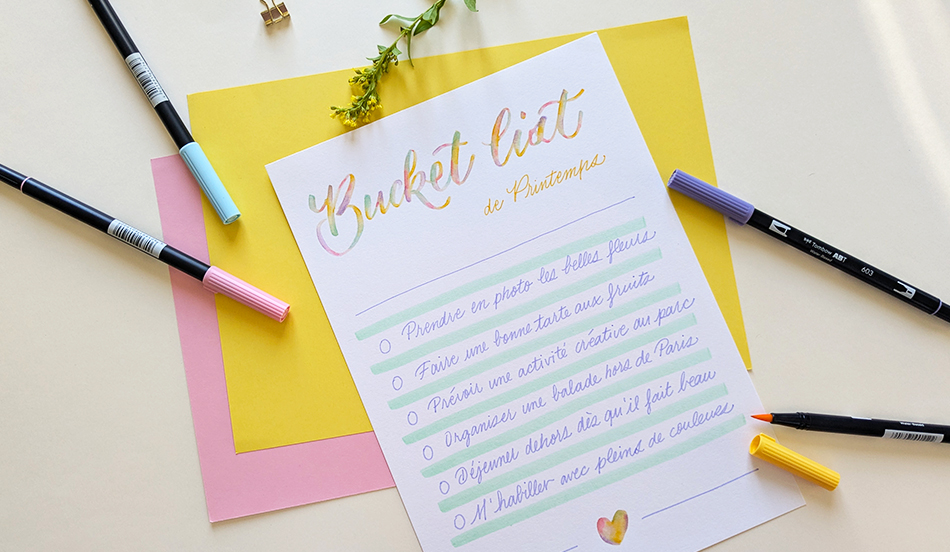 Bucket list
de Printemps
Prendre en photo les belles fleurs
Faire une bonne tarte aux fruits
Prévoir une activité créative au parc
Organiser une balade hors de Paris
Déjeuner dehors dès qu'il fait beau
M'habiller avec pleins de couleurs
Tombow ABT
603